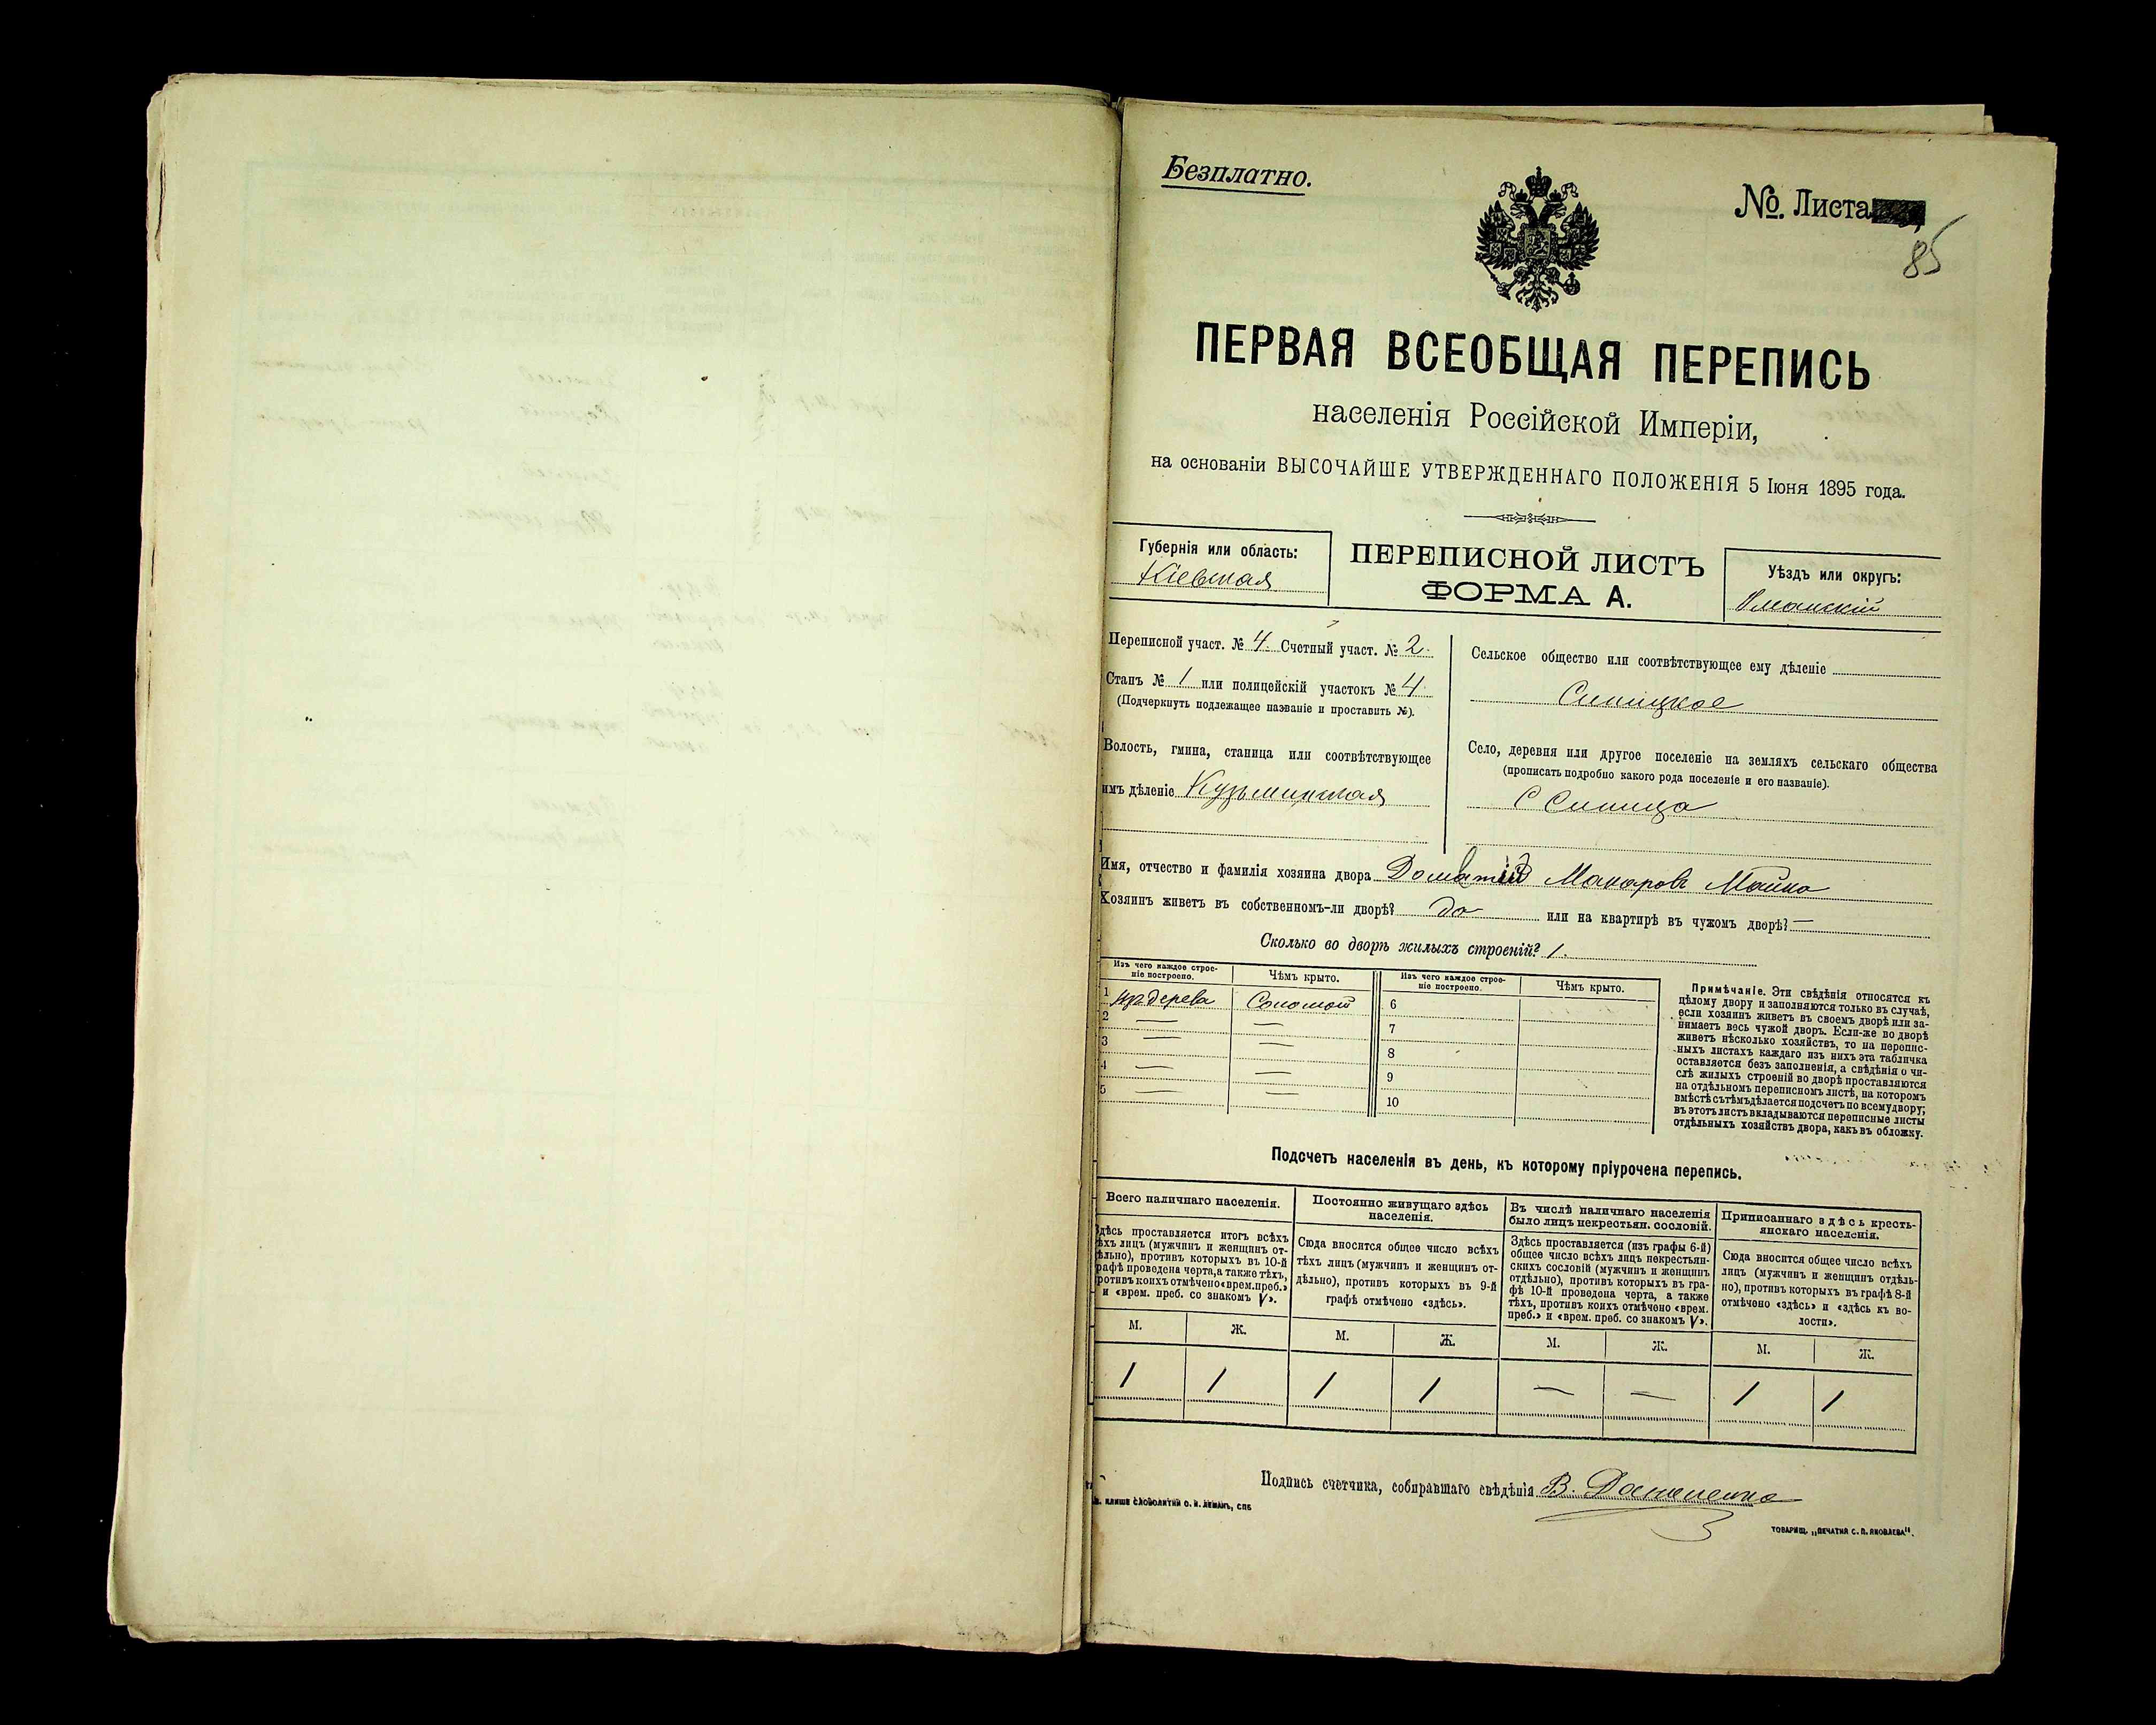 Безплатно.
№. Листа
85
ПЕРВАЯ ВСЕОБЩАЯ ПЕРЕПИСЬ
населенія Россійской Имперіи,
на основаніи ВЫСОЧАЙШЕ УТВЕРЖДЕННАГО ПОЛОЖЕНІЯ 5 Іюня 1895 года.
Губернія или область:
Кіевская
ПЕРЕПИСНОЙ ЛИСТЪ
ФОРМА А.
Уѣздъ или округъ:
Уманскій
Переписной участ. № 4. Счетный участ. № 2.
Станъ № 1 или полицейскій участокъ № 4
(Подчеркнуть подлежащее названіе и проставить №).
Волость, гмина, станица или соотвѣтствующее
имъ дѣленіе Кузьминская
Сельское общество или соотвѣтствующее ему дѣленіе
Синицкое
Село, деревня или другое поселеніе на земляхъ сельскаго общества
(прописать подробно какого рода поселеніе и его названіе).
С Синица
Имя, отчество и фамилія хозяина двора Макаровъ Майко
Хозяинъ живетъ въ собственномъ-ли дворѣ? да или на квартирѣ въ чужомъ дворѣ? —
Сколько во дворѣ жилыхъ строеній? 1.
Изъ чего каждое строе-
ніе построено.
Чѣмъ крыто.
Изъ чего каждое строе-
ніе построено.
Чѣмъ крыто.
1 изъ дерева Соломой 6
2 — — 7
3 — — 8
4 — — 9
5 — — 10
Примѣчаніе. Эти свѣдѣнія относятся къ
цѣлому двору и заполняются только въ случаѣ,
если хозяинъ живетъ въ своемъ дворѣ или за-
нимаетъ весь чужой дворъ. Если-же во дворѣ
живетъ нѣсколько хозяйствъ, то на перепис-
ныхъ листахъ каждаго изъ нихъ эта табличка
оставляется безъ заполненія, а свѣдѣнія о чи-
слѣ жилыхъ строеній во дворѣ проставляются
на отдѣльномъ переписномъ листѣ, на которомъ
вмѣстѣ съ тѣмъ дѣлается подсчетъ по всему двору;
въ этотъ листъ вкладываются переписные листы
отдѣльныхъ хозяйствъ двора, какъ въ обложку.
Подсчетъ населенія въ день, къ которому пріурочена перепись.
Всего наличнаго населенія.
Здѣсь проставляется итогъ всѣхъ
тѣхъ лицъ (мужчинъ и женщинъ от-
дѣльно), противъ которыхъ въ 10-й
графѣ проведена черта, а также тѣхъ,
противъ коихъ отмѣчено «врем. преб.»
и «врем. преб. со знакомъ V».
Постоянно живущаго здѣсь
населенія.
Сюда вносится общее число всѣхъ
тѣхъ лицъ (мужчинъ и женщинъ от-
дѣльно), противъ которыхъ въ 9-й
графѣ отмѣчено «здѣсь».
Въ числѣ наличнаго населенія
было лицъ некрестьян. сословій.
Здѣсь проставляется (изъ графы 6-й)
общее число всѣхъ лицъ некрестьян-
скихъ сословій (мужчинъ и женщинъ
отдѣльно), противъ которыхъ въ гра-
фѣ 10-й проведена черта, а также
тѣхъ, противъ коихъ отмѣчено «врем.
преб.» и «врем. преб. со знакомъ V».
Приписаннаго здѣсь кресть-
янскаго населенія.
Сюда вносится общее число всѣхъ
лицъ (мужчинъ и женщинъ отдѣль-
но), противъ которыхъ въ графѣ 8-й
отмѣчено «здѣсь» и «здѣсь къ во-
лости».
М. Ж. М. Ж. М. Ж. М. Ж.
1 1 1 1 — — 1 1
Подпись счетчика, собиравшаго свѣдѣнія В.
КЛИШЕ СЛОВОЛИТНИ О. И. ЛЕМАНЪ, СПБ
ТОВАРИЩ. „ПЕЧАТНЯ С. П. ЯКОВЛЕВА".